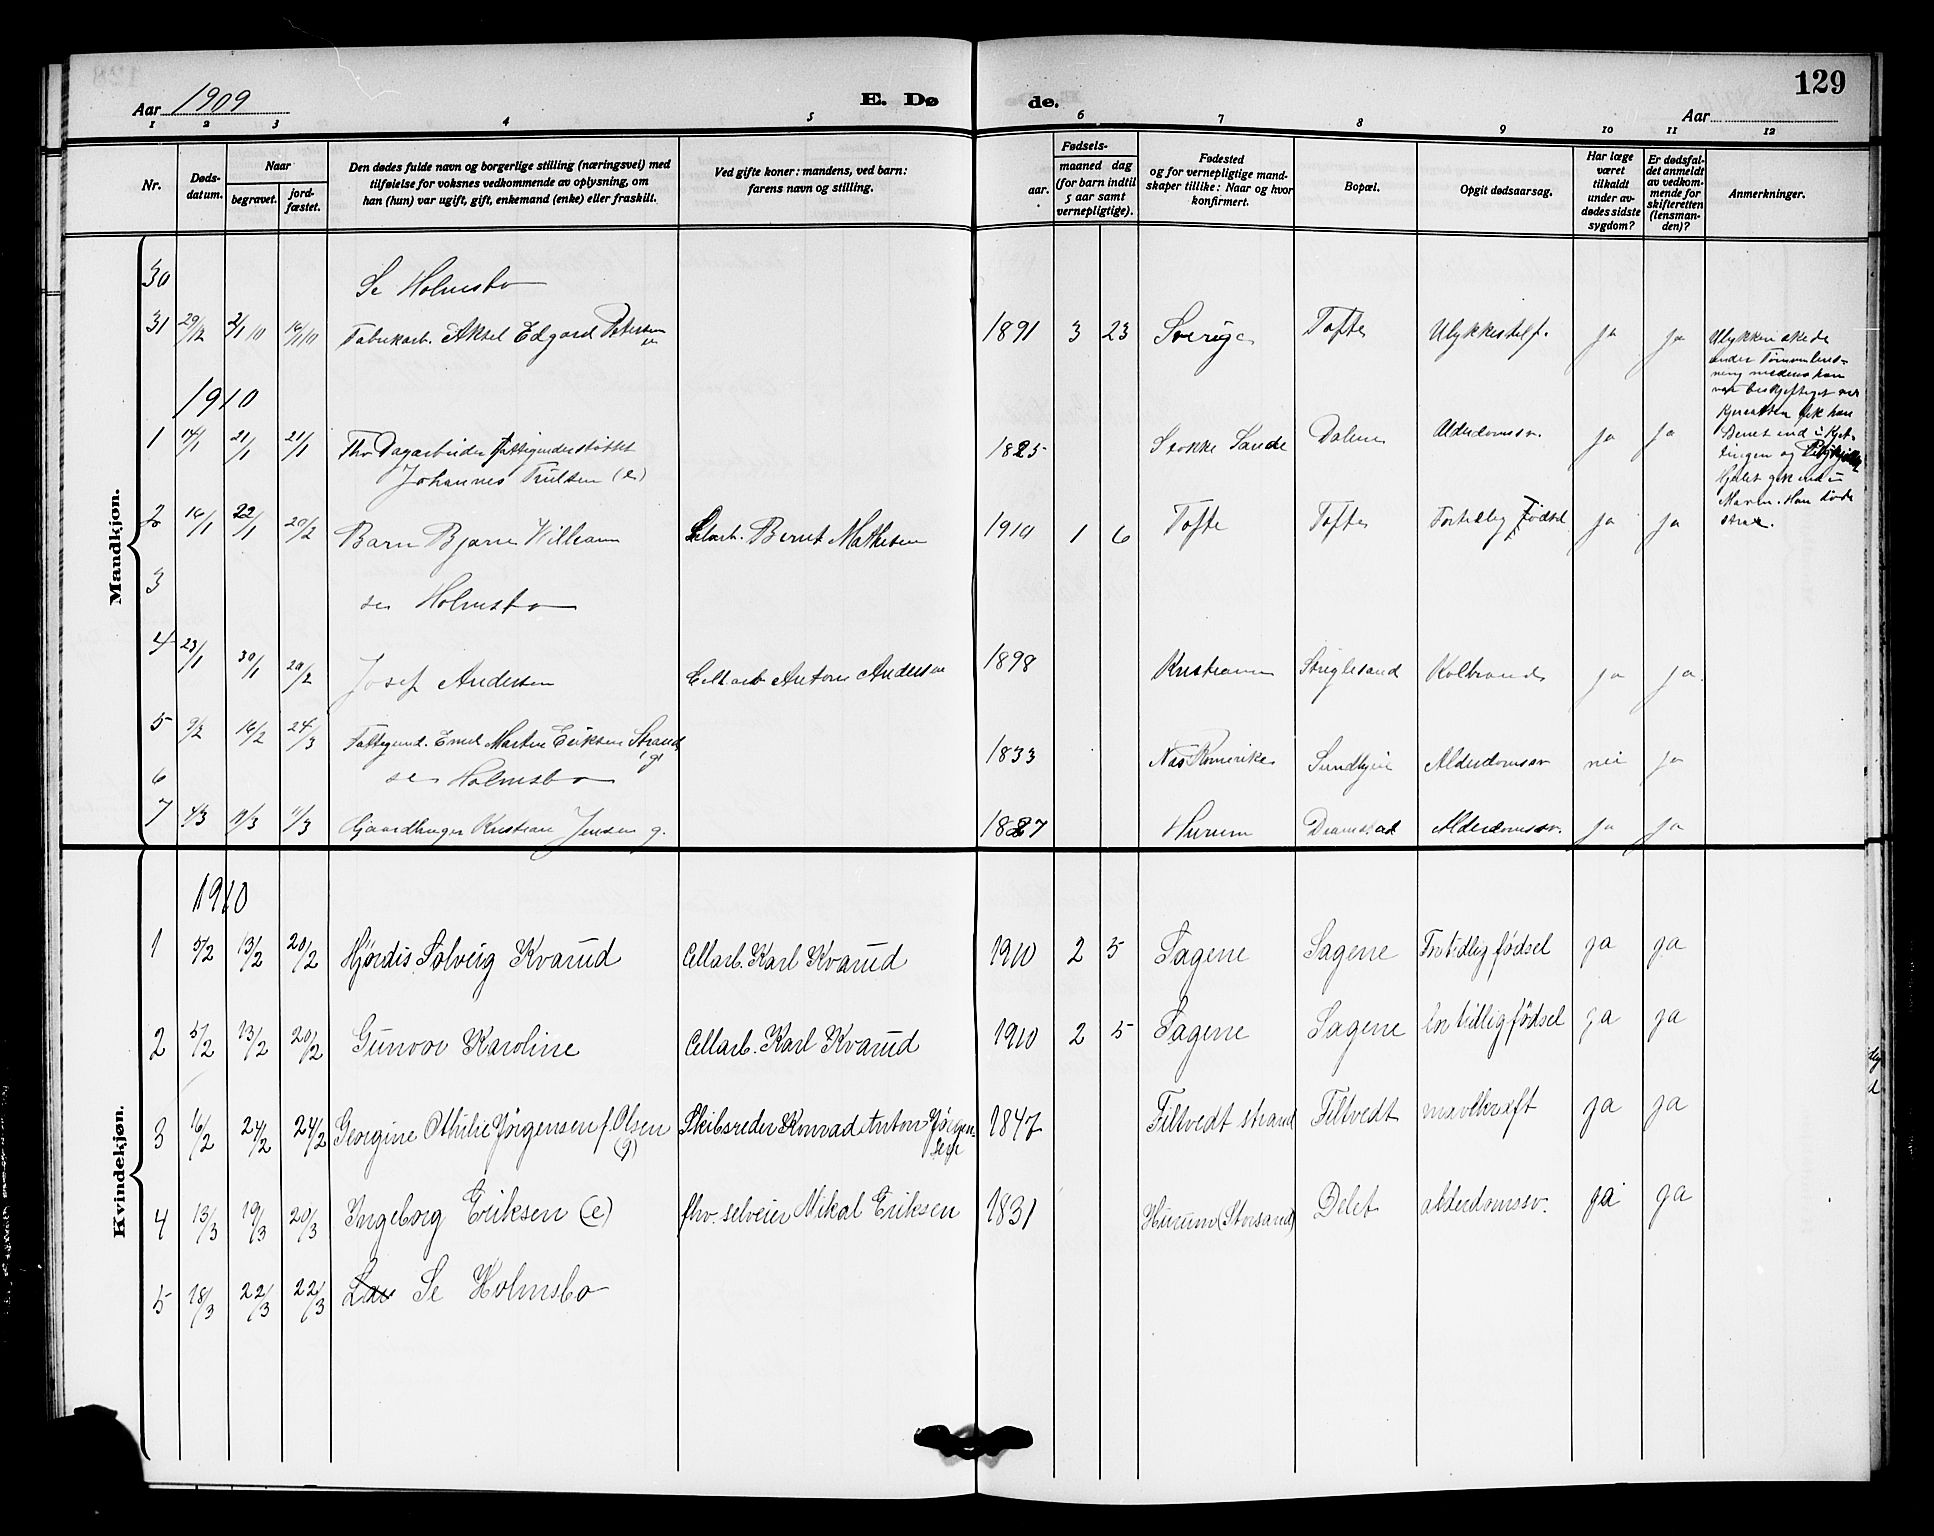 129
Aar 1909
E. Dø
de.
Aar
1 2 3 4 5 6 7 8 9 10 11 12
Nr.
Døds-
datum.
Naar
begravet.
jord-
fæstet.
Den dødes fulde navn og borgerlige stilling (næringsvei) med
tilføielse for voksnes vedkommende av oplysning, om
han (hun) var ugift, gift, enkemand (enke) eller fraskilt.
Ved gifte koner: mandens, ved barn:
farens navn og stilling.
Fødsels-
aar.
maaned dag
(for barn indtil
5 aar samt
vernepligtige).
Fødested
og for vernepligtige mand-
skaper tillike: Naar og hvor
konfirmert.
Bopæl.
Opgit dødsaarsag.
Har læge
været
tilkaldt
under av-
dødes sidste
sygdom?
Er dødsfal-
det anmeldt
av vedkom-
mende for
skifteretten
(lensman-
den)?
Anmerkninger.
Mandkjøn.
30 Se Holmsbo
31 29/12 2/1 10 16/1 10 Fabrikarb. Aksel Edgard Petersen 1891 3 23 Sverige Tofte Ulykkestilf. ja ja
Ulykken skede
under Tømmerlens-
ning medens han
var beskjeftiget ved
fik han
Benet ind i Kjet-
tingen og
Hjulet gik ind i
Maven. Han døde
strax.
1910
1 14/1 21/1 21/1 Fhv. Dagarbeider fattigunderstøttet
Johannes Trulsen (e) 1825 Stokke Sande Dalene Alderdomssv. ja ja
2 16/1 22/1 20/2 Barn Bjarne William Celarb. Bernt Mathisen 1910 1 6 Tofte Tofte Fortidlig Fødsel ja ja
3 se Holmsbo
4 23/1 30/1 20/2 Josef Andersen Cellarb Anton Andersen 1898 Kristiania Kolbrand ja ja
5 9/2 16/2 24/3 Fattigund. Emil Martin Eriksen Strand
(g) 1833 Næs Romerike Sundbyeie Alderdomssv nei ja
6 se Holmsbo
7 4/3 11/3 11/3 Gaardbruger Kristian Jensen g. 1827 Hurum Dramstad Alderdomssv. ja ja
Kvindekjøn.
1910
1 5/2 13/2 20/2 Hjørdis Solveig Kvarud Cellarb. Karl Kvarud 1910 2 5 Sagene Sagene For tidlig fødsel ja ja
2 5/2 13/2 20/2 Gunvor Karoline Cellarb. Karl Kvarud 1910 2 5 Sagene Sagene For tidlig fødsel ja ja
3 16/2 24/2 24/2 Georgine Othilie Jørgensen f. Olsen
(g) Skibsreder Konrad Anton Jørgen-
sen 1847 Filtvedt strand Filtvedt mavekræft ja ja
4 13/3 19/3 20/3 Ingeborg Eriksen (e) fhv. selveier Mikal Eriksen 1831 Hurum (Storsand) Delet alderdomssv. ja ja
5 18/3 22/3 22/3 Se Holmsbo